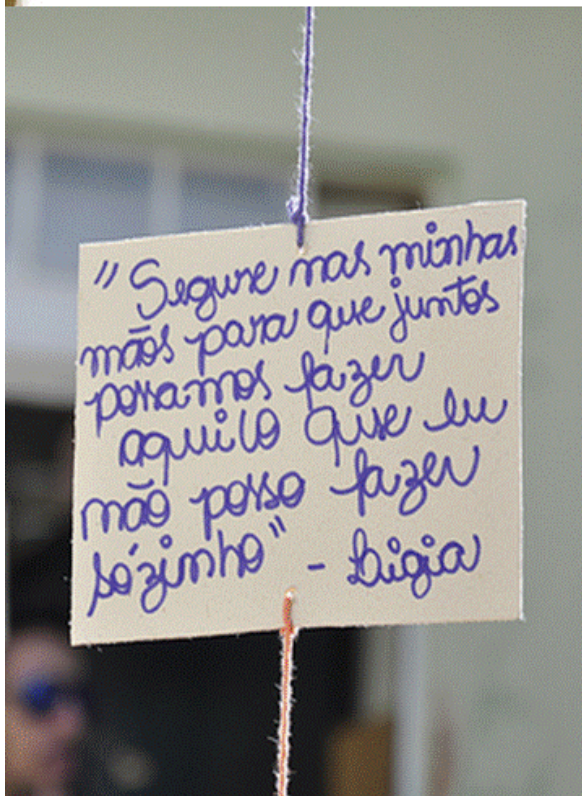 "Segure nas minhas
mãos para que juntos
possamos fazer
aquilo que eu
não posso fazer
sózinho" - Ligia